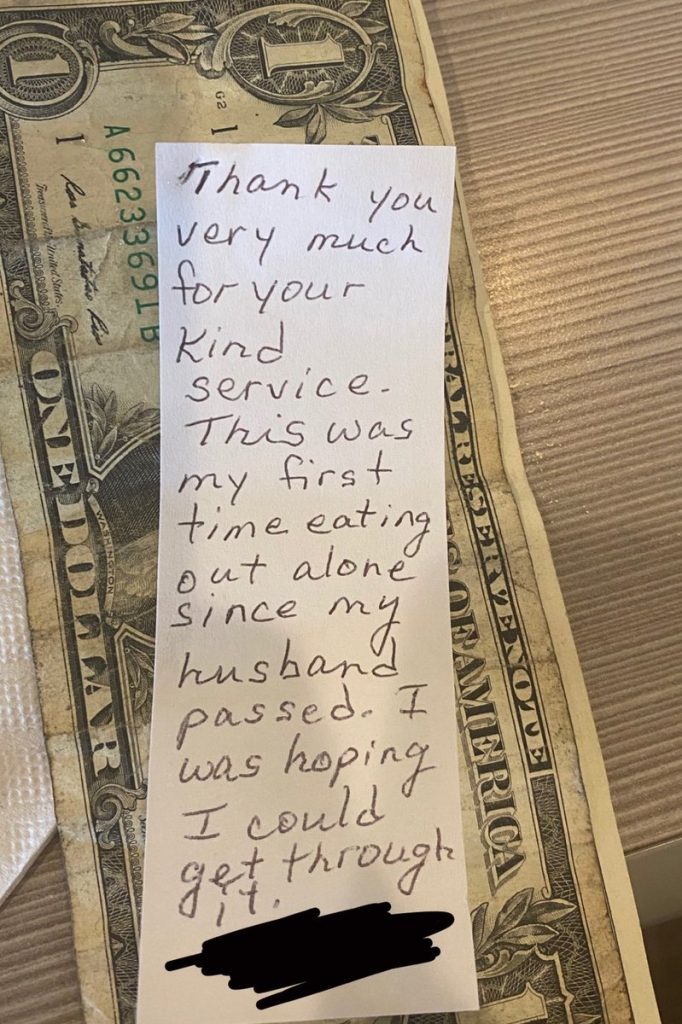 Thank you
very much
for your
kind
service.
This was
my first
time eating
out alone
since my
husband
passed. I
was hoping
I could
get through
it.
1
1
G2
1
1
A66233691B
Treasurer of the United States.
ONE DOLLAR
WASHINGTON
RAL RESERVE NOTE
S OF AMERICA